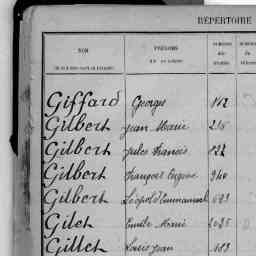 RÉPERTOIRE
NOM PRÉNOMS
Giffard Georges 162
Gilbert Jean Marie 216
Gilbert Jules Francis 822
Gilbert François Eugène 940
Gilbert Léopold Emmanuel 693
Gilet Emile Marie 2025
Gillet Louis Jean 183